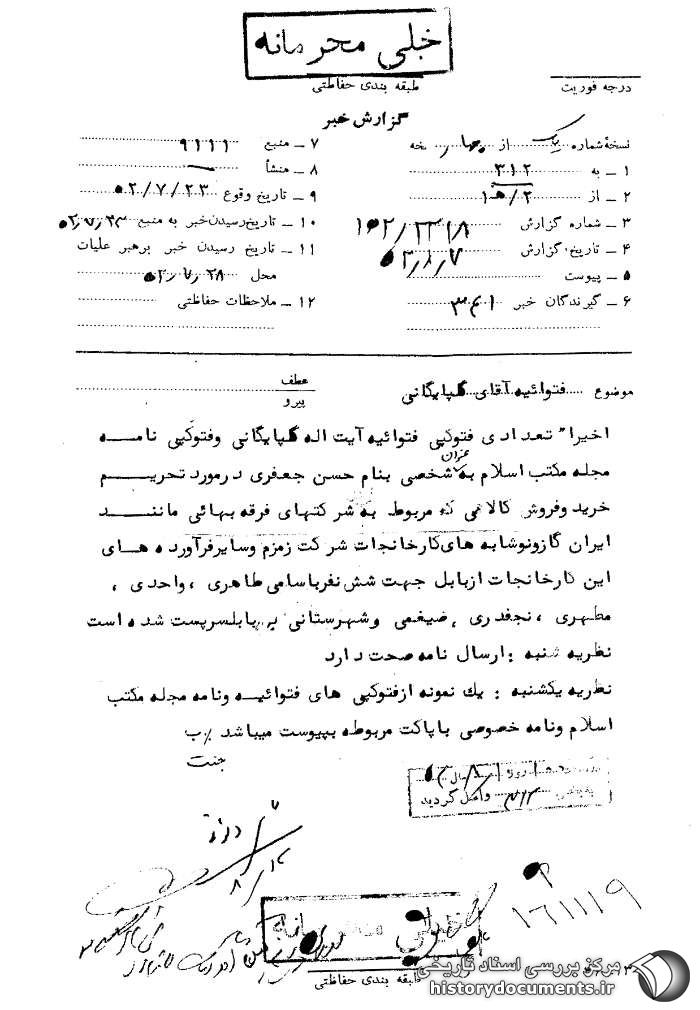 خیلی محرمانه
طبقه بندی حفاظتی
درجه فوریت
گزارش خبر
نسخهٔ شماره یک از چهار نسخه
۱ ــ به ۳۱۲
۲ ــ از ۲/ﻫ۱
۳ ــ شماره گزارش
۴ ــ تاریخ گزارش
۵ ــ پیوست
۶ ــ گیرندگان خبر ۳۴۱
۷ ــ منبع ۹۱۱۱
۸ ــ منشأ
۹ ــ تاریخ وقوع ۵۲/۷/۲۳
۱۰ ــ تاریخ رسیدن خبر به منبع ۵۲/۷/۲۳
۱۱ ــ تاریخ رسیدن خبر برهبر عملیات
محل ۵۲/۷/۲۸
۱۲ ــ ملاحظات حفاظتی
موضوع فتوائیه آقای گلپایگانی
عطف
پیرو
اخیرا" تعدادی فتوکپی فتوائیه آیت اله گلپایگانی وفتوکپی نامه
مجله مکتب اسلام به شخصی بنام حسن جعفری درمورد تحریم
خرید وفروش کالاهائی که مربوط به شرکتهای فرقه بهائی مانند
ایران گازونوشابه های کارخانجات شرکت زمزم وسایرفرآورده های
این کارخانجات ازبابل جهت شش نفرباسامی طاهری ، واحدی ،
مطهری ، نجفدری ، ضیغمی وشهرستانی به بابلسرپست شده است
نظریه شنبه : ارسال نامه صحت دارد
نظریه یکشنبه : یك نمونه ازفتوکپی های فتوائیه ونامه مجله مکتب
اسلام ونامه خصوصی باپاکت مربوطه بپیوست میباشد ب
جنت
روز سال ۵۲
بخش ۳۱۲ واصل گردید
۱۶۱۱۱۹
خیلی محرمانه
طبقه بندی حفاظتی
مرکز بررسی اسناد تاریخی
historydocuments.ir